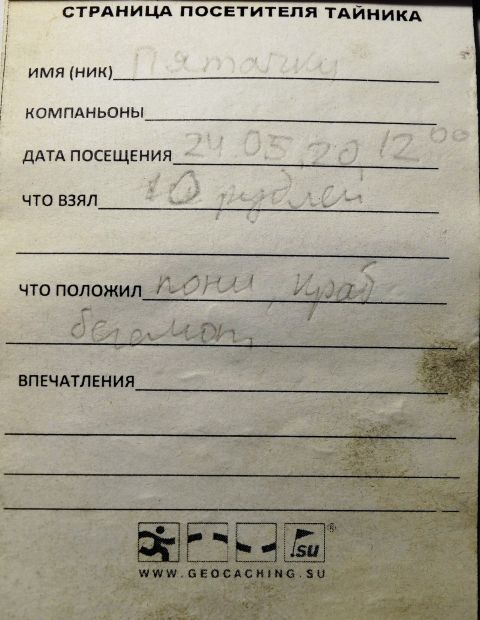 СТРАНИЦА ПОСЕТИТЕЛЯ ТАЙНИКА
ИМЯ (НИК) Пятачки
КОМПАНЬОНЫ
ДАТА ПОСЕЩЕНИЯ 24 05 20 12 00
ЧТО ВЗЯЛ 10 рублей
ЧТО ПОЛОЖИЛ пони, краб
бегемот,
ВПЕЧАТЛЕНИЯ
.su ®
WWW.GEOCACHING.SU